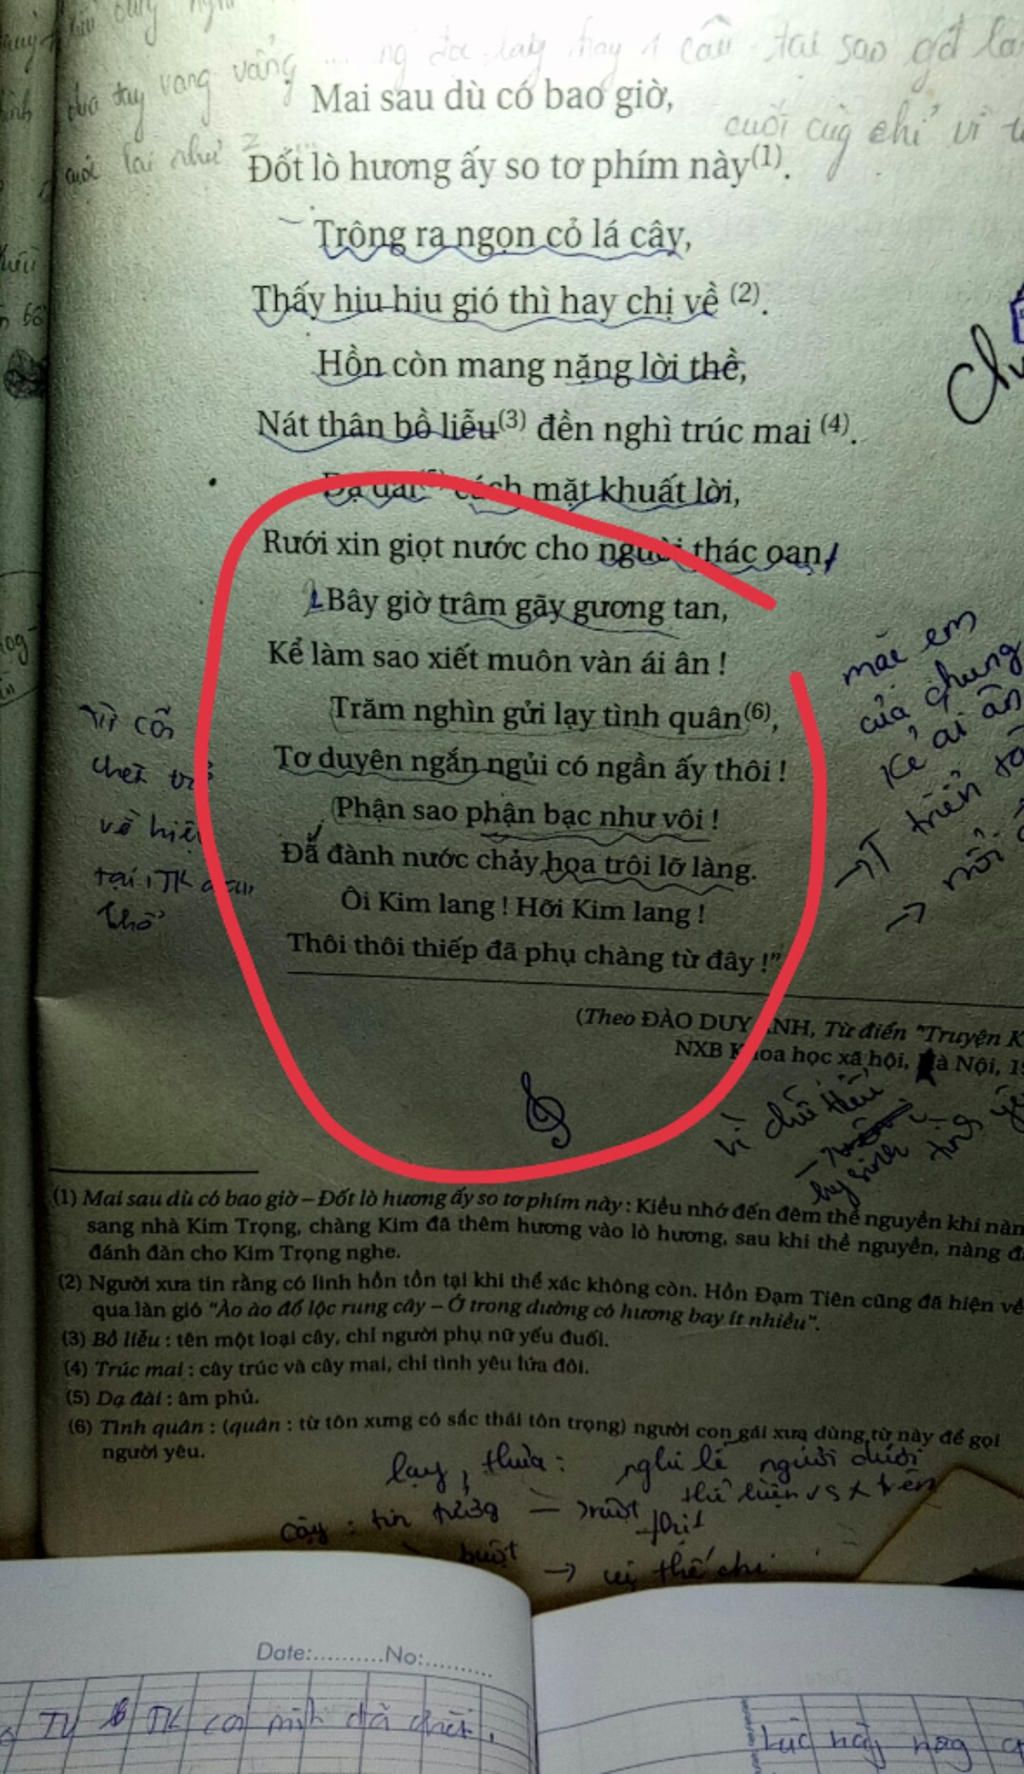 cầu tại sao
tay vang vẳng
Mai sau dù có bao giờ,
cuối cùg chỉ vì
lại như
Đốt lò hương ấy so tơ phím này(1).
Trông ra ngọn cỏ lá cây,
Thấy hiu hiu gió thì hay chị về (2).
Hồn còn mang nặng lời thề,
Nát thân bồ liễu(3) đền nghì trúc mai (4).
Dạ đài(5) cách mặt khuất lời,
Rưới xin giọt nước cho người thác oan.
Bây giờ trâm gãy gương tan,
Kể làm sao xiết muôn vàn ái ân !
Trăm nghìn gửi lạy tình quân(6),
Tơ duyên ngắn ngủi có ngần ấy thôi !
Phận sao phận bạc như vôi !
Đã đành nước chảy hoa trôi lỡ làng.
Ôi Kim lang ! Hỡi Kim lang !
Thôi thôi thiếp đã phụ chàng từ đây !"
Từ cõi
chết
về hiện
tại, TK
khổ
của chung
(Theo ĐÀO DUY ANH, Từ điển "Truyện K
NXB Khoa học xã hội, Hà Nội, 1
vì chữ hiếu
hy sinh
(1) Mai sau dù có bao giờ – Đốt lò hương ấy so tơ phím này : Kiều nhớ đến đêm thề nguyền khi nàn
sang nhà Kim Trọng, chàng Kim đã thêm hương vào lò hương, sau khi thề nguyền, nàng đ
đánh đàn cho Kim Trọng nghe.
(2) Người xưa tin rằng có linh hồn tồn tại khi thể xác không còn. Hồn Đạm Tiên cũng đã hiện về
qua làn gió "Ào ào đổ lộc rung cây – Ở trong dường có hương bay ít nhiều".
(3) Bồ liễu : tên một loại cây, chỉ người phụ nữ yếu đuối.
(4) Trúc mai : cây trúc và cây mai, chỉ tình yêu lứa đôi.
(5) Dạ đài : âm phủ.
(6) Tình quân : (quân : từ tôn xưng có sắc thái tôn trọng) người con gái xưa dùng từ này để gọi
người yêu.
lạy, thưa : nghi lễ người dưới
Date:..........No:..........
TK con mình đã chết.
Lúc này